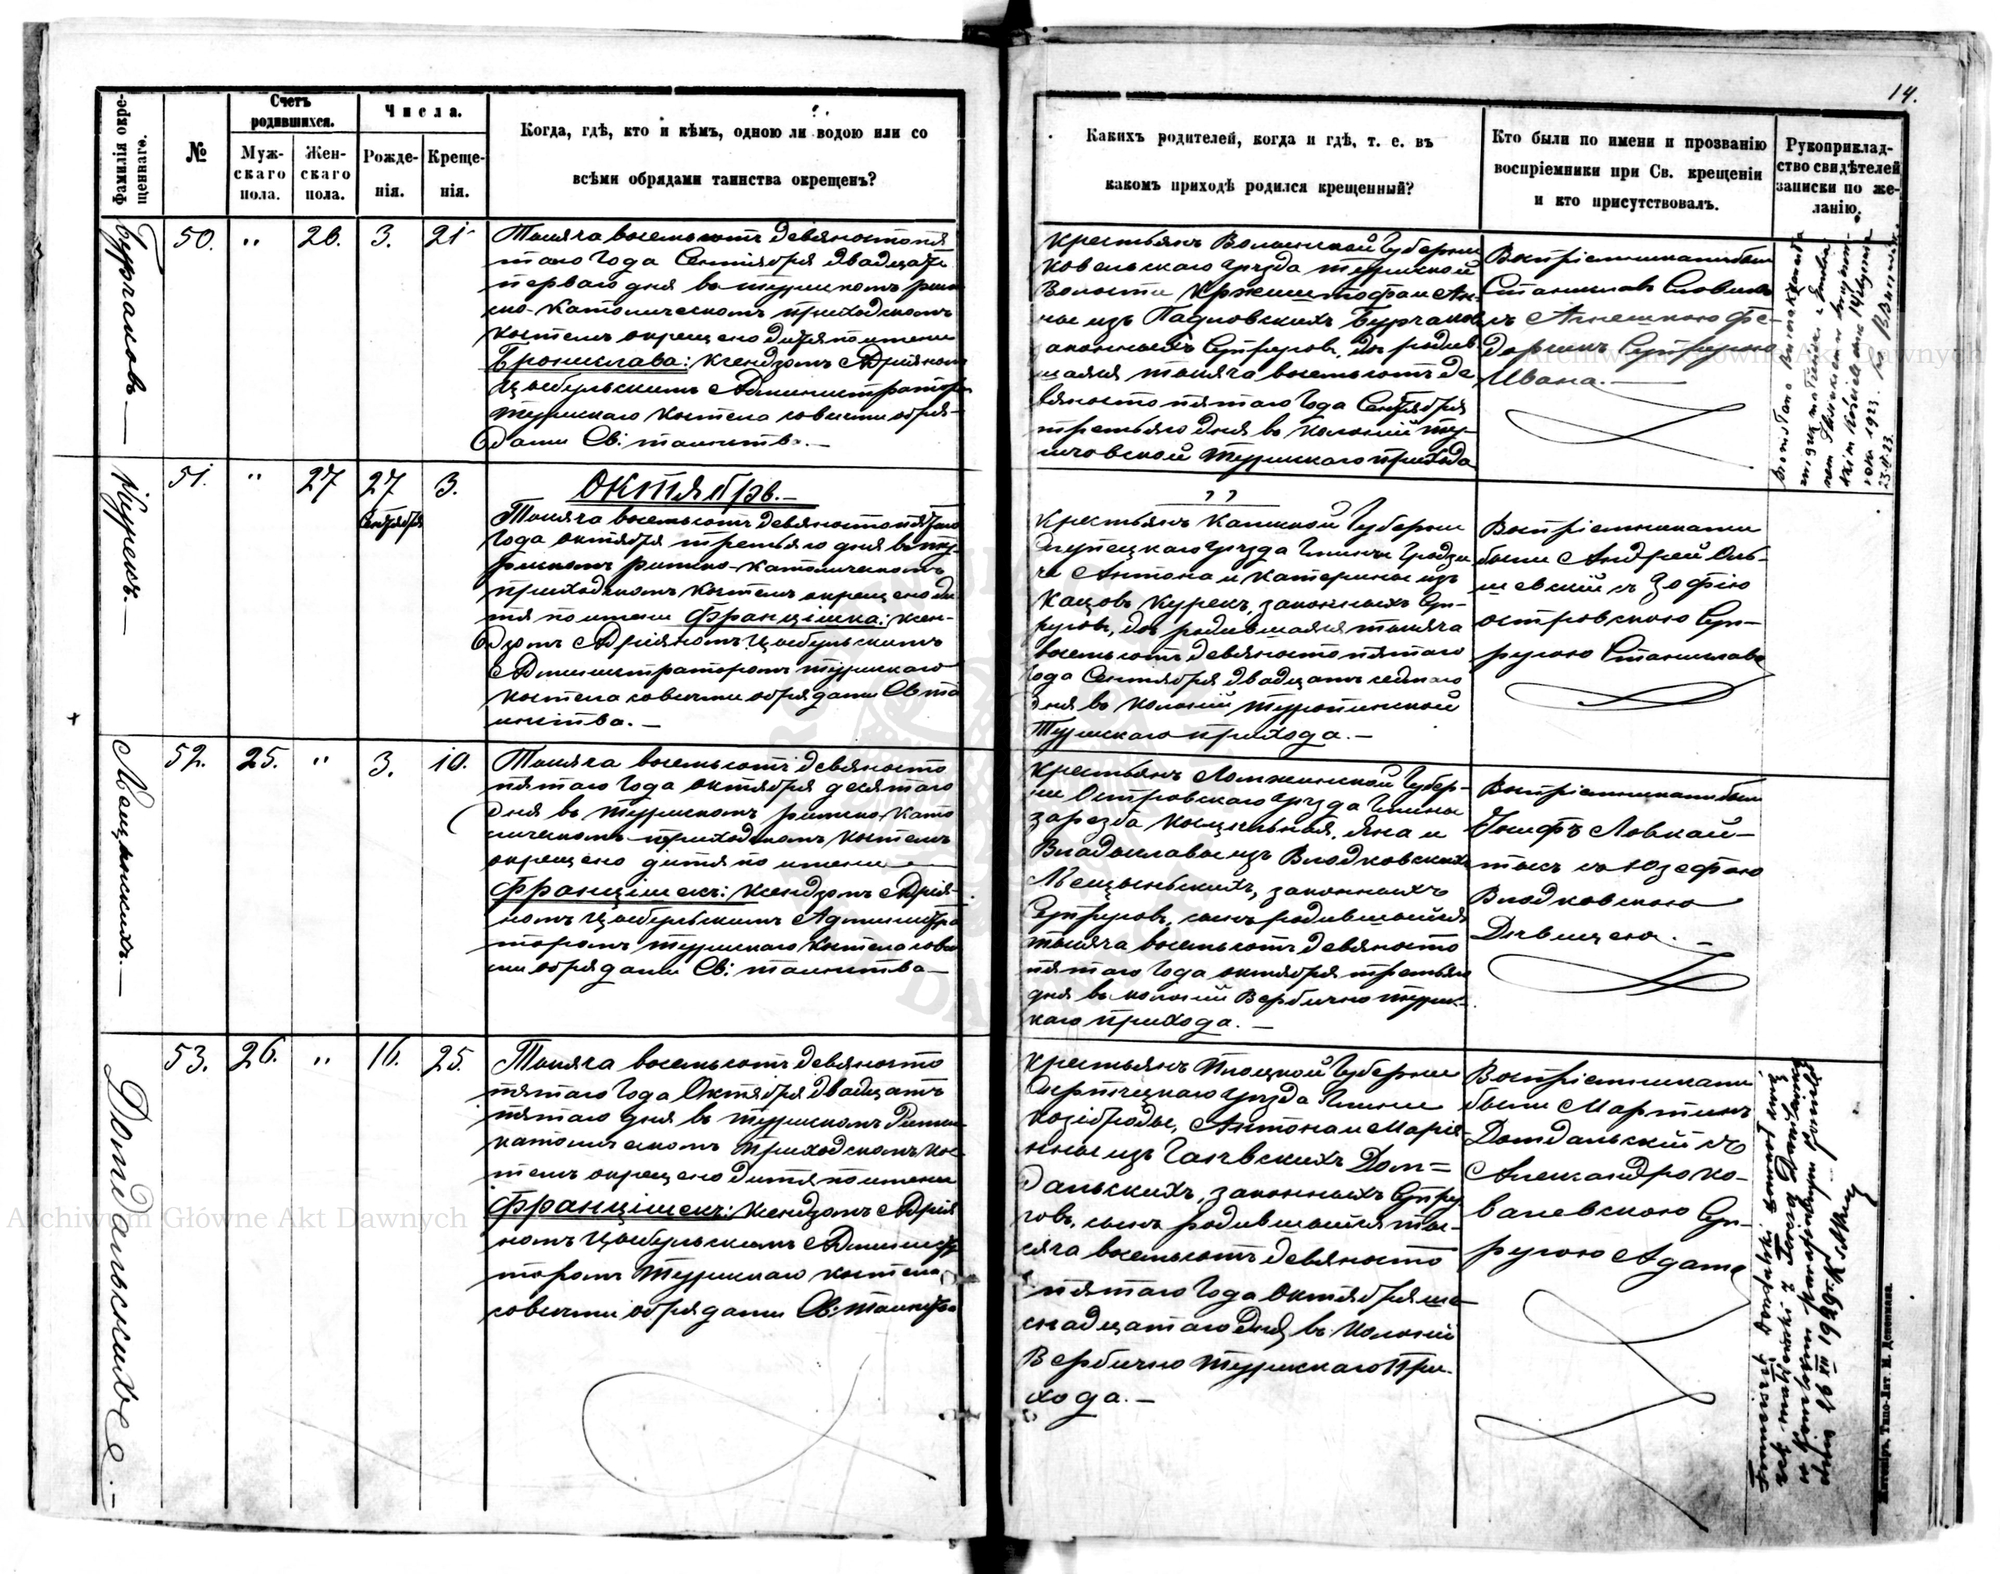 14.
Фамилія окре-
щеннаго.
№
Счетъ
родившихся.
Муж-
скаго
пола.
Жен-
скаго
пола.
Числа.
Рожде-
нія.
Креще-
нія.
Когда, гдѣ, кто и кѣмъ, одною ли водою или со
всѣми обрядами таинства окрещенъ?
Каких​ъ родителей, когда и гдѣ, т. е. въ
какомъ приходѣ родился крещенный?
Кто были по имени и прозванію
воспріемники при Св. крещеніи
и кто присутствовалъ.
Рукоприклад-
ство свидѣтелей
записки по же-
ланію.
Бурчаковъ —
50. " 26. 3. 21
Тысяча восемьсотъ девяностопя
таго года Сентября двадцать
перваго дня въ Турискомъ рим
ско-католическомъ приходскомъ
костелѣ окрещено дитя по имени
Бронислава: ксендзомъ Адріяномъ
Цыбульскимъ Администраторомъ
Турискаго костела со всѣми обря-
дами Св: таинства. —
Крестьянъ Волынской Губерніи
Ковельскаго уѣзда Турийской
Волости Кржиштофа и Ан-
ны изъ Падловскихъ Бурчаковъ
законныхъ Супруговъ, дочь родив
шаяся тысяча восемьсотъ де
вяносто пятаго года Сентября
третьяго дня въ колоніи Ту-
личовской Турискаго прихода
Воспріемниками были
Станиславъ Словикъ
съ Агнешкою Фе-
дорикъ Супругою
Ивана. —
Курекъ. —
51. " 27 27 3.
Сентября
Октябрь. —
Тысяча восемьсотъ девяносто пятаго
года октября третьяго дня въ Ту-
рискомъ римско-католическомъ
приходскомъ костелѣ окрещено ди
тя по имени Францишка: ксен-
дзомъ Адріяномъ Цыбульскимъ
Администраторомъ Турискаго
костела со всѣми обрядами Св та
инства. —
Крестьянъ Калишской Губерніи
Слупецкаго уѣзда Гмины Гродзи
ча Антона и Катерины изъ
Кацовъ Курекъ, законныхъ Суп-
руговъ, дочь родившаяся тысяча
восемьсотъ девяносто пятаго
года Сентября двадцать седьмаго
дня въ колоніи Туропинской
Турискаго прихода. —
Воспріемниками
были Андрей Оль-
шевскій съ Зофіею
Островскою Суп-
ругою Станислава
Мещинскихъ. —
52. 25. " 3. 10.
Тысяча восемьсотъ девяносто
пятаго года октября десятаго
дня въ Турискомъ римско-като
лическомъ приходскомъ костелѣ
окрещено дитя по имени
Францишекъ: ксендзомъ Адрія-
номъ Цыбульскимъ Администра
торомъ Турискаго костела со всѣ
ми обрядами Св: таинства —
Крестьянъ Ломжинской Губер-
ніи Островскаго уѣзда Гмины
Зарезба Косцельная, Яна и
Владыславы изъ Владковскихъ
Мещыньскихъ, законныхъ
Супруговъ, сынъ родившійся
тысяча восемьсотъ девяносто
пятаго года октября третьяго
дня въ колоніи Вербично Турис-
каго прихода. —
Воспріемниками были
съ Юзефою
Владковскою
Дѣвицею. —
Домдальскихъ. —
53. 26. " 16. 25.
Тысяча восемьсотъ девяносто
пятаго года Октября двадцать
пятаго дня въ Турискомъ Римско
католическомъ Приходскомъ кос-
телѣ окрещено дитя по имени
Францишекъ: ксендзомъ Адрія
номъ Цыбульскимъ Администра
торомъ Турискаго костела
со всѣми обрядами Св: таинства
Крестьянъ Плоцкой Губерніи
Серпецкаго уѣзда Гмины
Козіброды, Антона и Маріян-
ны изъ Домъ=
дальскихъ, законныхъ Супру
говъ, сынъ родившійся ты-
сяча восемьсотъ девяносто
пятаго года Октября ше-
снадцатаго дня, въ колоніи
Вербично Турискаго При-
хода. —
Воспріемниками
были Мартинъ
Домдальскій съ
Александрою Ко-
валевскою Суп-
ругою Адама
Житоміръ. Типо-Лит. М. Дененмана.
Archiwum Główne Akt Dawnych
Archiwum Główne Akt Dawnych